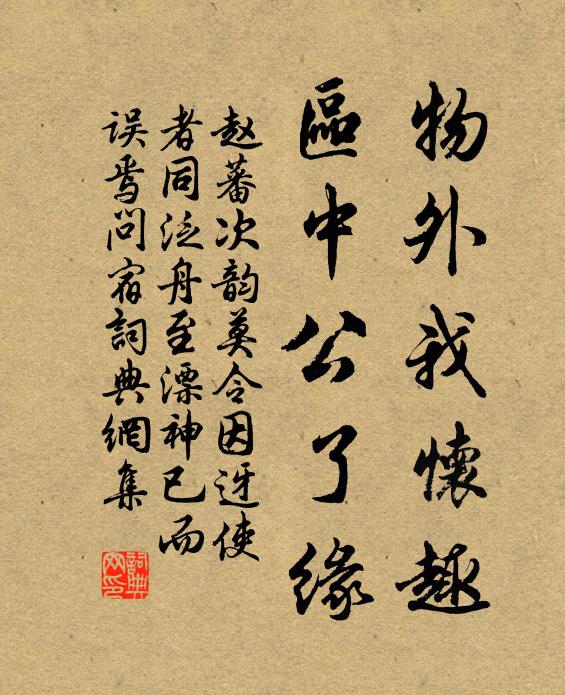 物外我懷趣
區中公了緣
赵蕃次韵莫令因迓使
者同泛舟至溧神已而
误焉问宿詞典網集
詞典
网印